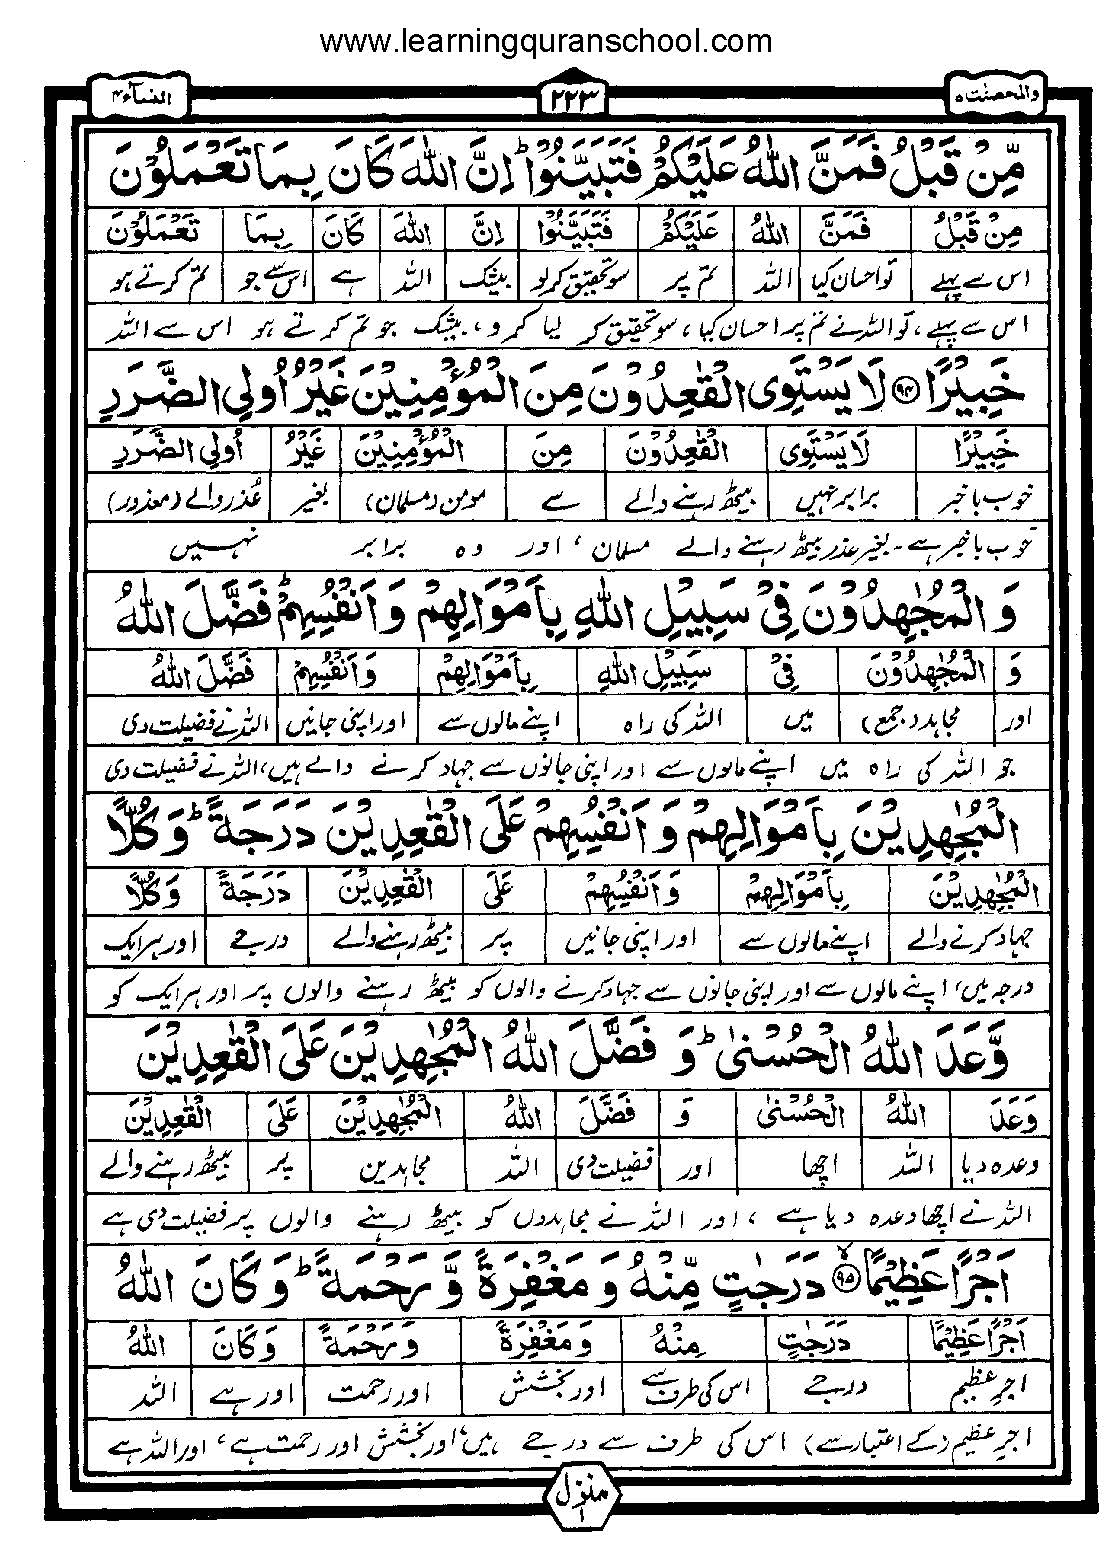 www.learningquranschool.com
والمحصنت ۵
۲۲۳
النسآء ۴
مِّنْ قَبْلُ فَمَنَّ اللّٰهُ عَلَيْكُمْ فَتَبَيَّنُوْا ؕ اِنَّ اللّٰهَ كَانَ بِمَا تَعْمَلُوْنَ
مِنْ قَبْلُ فَمَنَّ اللّٰهُ عَلَيْكُمْ فَتَبَيَّنُوْا اِنَّ اللّٰهَ كَانَ بِمَا تَعْمَلُوْنَ
اس سے پہلے تو احسان کیا اللہ تم پر سو تحقیق کر لو بیشک اللہ ہے اس سے جو تم کرتے ہو
اس سے پہلے، تو اللہ نے تم پر احسان کیا، سو تحقیق کر لیا کرو، بیشک جو تم کرتے ہو اس سے اللہ
خَبِيْرًا ﴿۹۴﴾ لَا يَسْتَوِى الْقٰعِدُوْنَ مِنَ الْمُؤْمِنِيْنَ غَيْرُ اُولِى الضَّرَرِ
خَبِيْرًا لَا يَسْتَوِى الْقٰعِدُوْنَ مِنَ الْمُؤْمِنِيْنَ غَيْرُ اُولِى الضَّرَرِ
خوب باخبر برابر نہیں بیٹھ رہنے والے سے مومن (مسلمان) بغیر عُذر والے (معذور)
خوب باخبر ہے۔ بغیر عذر بیٹھ رہنے والے مسلمان، اور وہ برابر نہیں
وَ الْمُجٰهِدُوْنَ فِىْ سَبِيْلِ اللّٰهِ بِاَمْوَالِهِمْ وَ اَنْفُسِهِمْ ؕ فَضَّلَ اللّٰهُ
وَ الْمُجٰهِدُوْنَ فِىْ سَبِيْلِ اللّٰهِ بِاَمْوَالِهِمْ وَ اَنْفُسِهِمْ فَضَّلَ اللّٰهُ
اور مجاہد (جمع) میں اللہ کی راہ اپنے مالوں سے اور اپنی جانیں اللہ نے فضیلت دی
جو اللہ کی راہ میں اپنے مالوں سے اور اپنی جانوں سے جہاد کرنے والے ہیں، اللہ نے فضیلت دی
الْمُجٰهِدِيْنَ بِاَمْوَالِهِمْ وَ اَنْفُسِهِمْ عَلَى الْقٰعِدِيْنَ دَرَجَةً ؕ وَ كُلًّا
الْمُجٰهِدِيْنَ بِاَمْوَالِهِمْ وَ اَنْفُسِهِمْ عَلَى الْقٰعِدِيْنَ دَرَجَةً وَ كُلًّا
جہاد کرنے والے اپنے مالوں سے اور اپنی جانیں پر بیٹھ رہنے والے درجے اور ہر ایک
درجہ میں، اپنے مالوں سے اور اپنی جانوں سے جہاد کرنے والوں کو بیٹھ رہنے والوں پر اور ہر ایک کو
وَّعَدَ اللّٰهُ الْحُسْنٰى ؕ وَ فَضَّلَ اللّٰهُ الْمُجٰهِدِيْنَ عَلَى الْقٰعِدِيْنَ
وَعَدَ اللّٰهُ الْحُسْنٰى وَ فَضَّلَ اللّٰهُ الْمُجٰهِدِيْنَ عَلَى الْقٰعِدِيْنَ
وعدہ دیا اللہ اچھا اور فضیلت دی اللہ مجاہدین پر بیٹھ رہنے والے
اللہ نے اچھا وعدہ دیا ہے، اور اللہ نے مجاہدوں کو بیٹھ رہنے والوں پر فضیلت دی ہے
اَجْرًا عَظِيْمًا ﴿۹۵﴾ دَرَجٰتٍ مِّنْهُ وَ مَغْفِرَةً وَّ رَحْمَةً ؕ وَ كَانَ اللّٰهُ
اَجْرًا عَظِيْمًا دَرَجٰتٍ مِنْهُ وَ مَغْفِرَةً وَ رَحْمَةً وَ كَانَ اللّٰهُ
اجر عظیم درجے اس کی طرف سے اور بخشش اور رحمت اور ہے اللہ
اجر عظیم (کے اعتبار سے) اس کی طرف سے درجے ہیں، اور بخشش اور رحمت ہے، اور اللہ ہے
منزل ۱